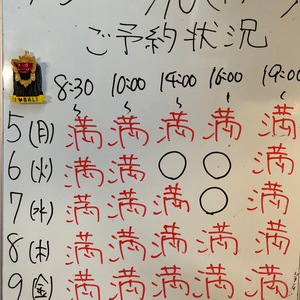 ご予約状況
I ♥ BALI
8:30〜 10:00〜 14:00〜 16:00〜 19:00〜
5(月) 満 満 満 満 満
6(火) 満 満 ○ ○ 満
7(水) 満 満 満 ○ 満
8(木) 満 満 満 満 満
9(金) 満 満 満 満 満